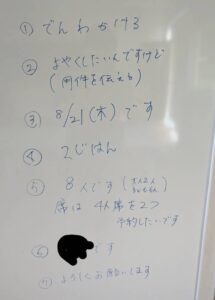 ① でんわかける
② よやくしたいんですけど
(用件を伝える)
③ 8/21(木)です
④ 2じはん
⑤ 8人です(大人2人
席は4人席を2つ
予約したいです
⑥ です
⑦ よろしくお願いします